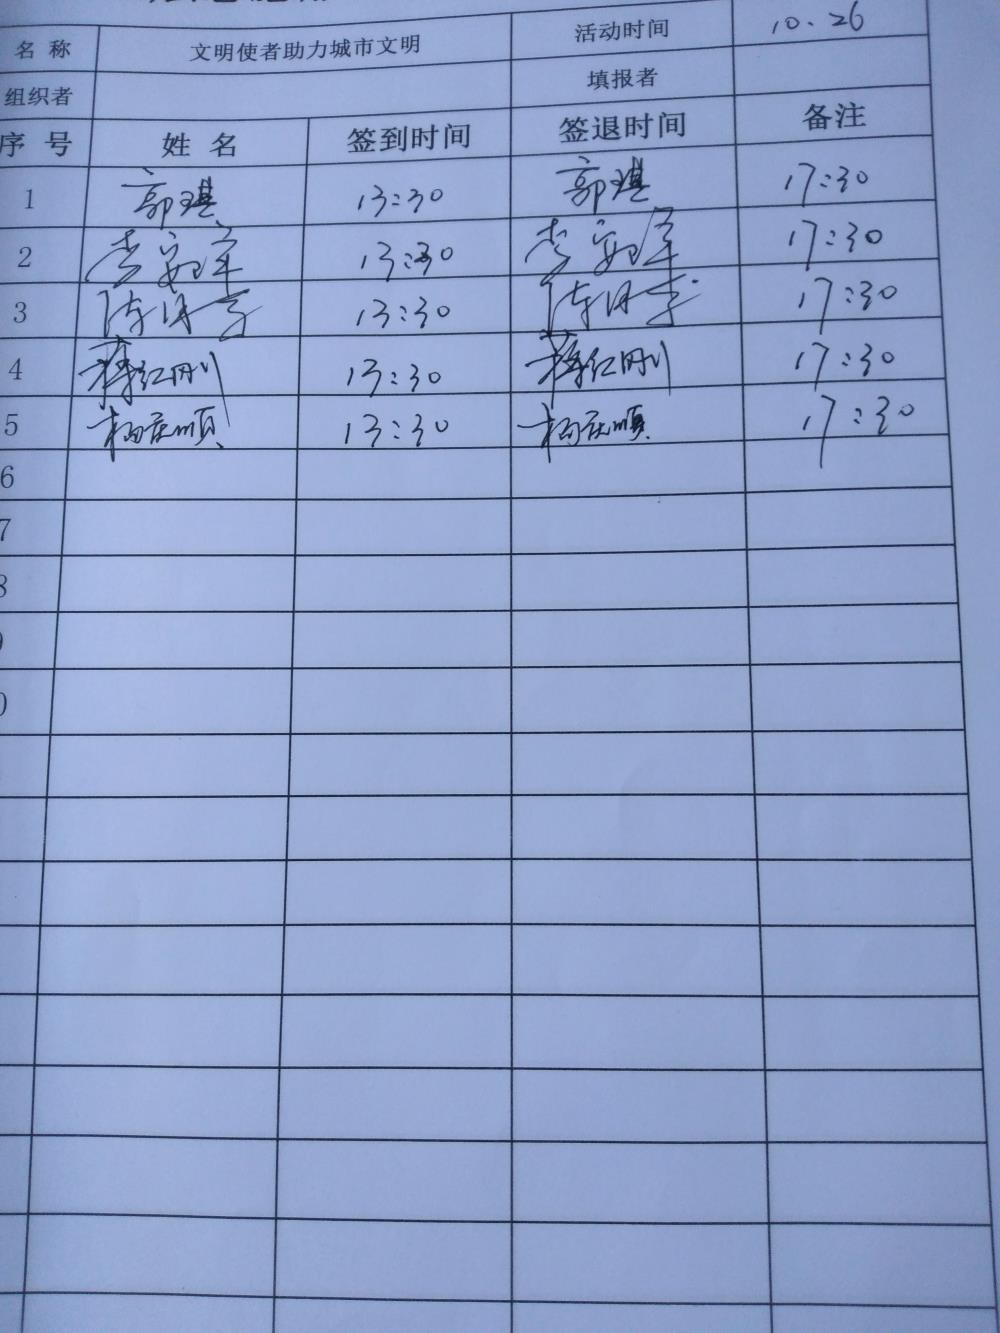 名 称 文明使者助力城市文明 活动时间 10.26
组织者 填报者
序 号 姓 名 签到时间 签退时间 备注
1 郭琪 13:30 郭琪 17:30
2 13:30 17:30
3 13:30 17:30
4 蒋红刚 13:30 蒋红刚 17:30
5 杨庆顺 13:30 杨庆顺 17:30
6
7
8